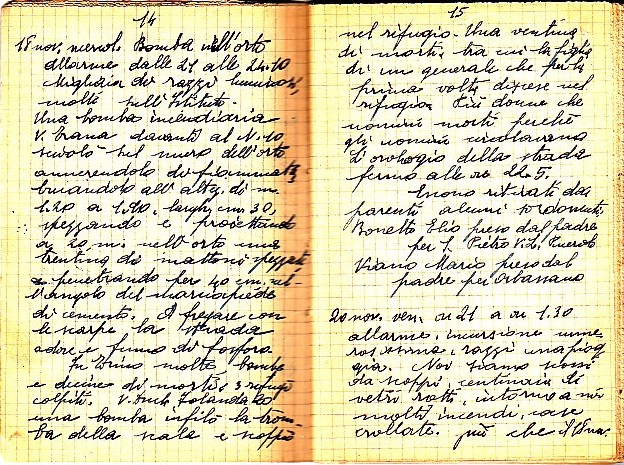 14
18 nov. mercol. Bomba nell'orto
allarme dalle 21 alle 24.10
Migliaia di razzi luminosi,
molti sull'Istituto.
Una bomba incendiaria
V. Frana davanti al N. 10
scivolò sul muro dell'orto
annerendolo di fiammata,
bucandolo all'altez. di m.
1.20 a 1.90, largh. cm. 30,
spezzando e proiettando
a 20 m. nell'orto una
trentina di mattoni spezzati
e penetrando per 40 cm. nel-
l'angolo del marciapiede
di cemento. A fregare con
le scarpe la strada
odore e fumo di fosforo
In Torino molte bombe
e decine di morti, 3 rifugi
colpiti. V. Duch. Jolanda 20
una bomba infilò la trom-
ba della scala e scoppiò
15
nel rifugio. Una ventina
di morti, tra cui la figlia
di un generale che per la
prima volta discese nel
rifugio. Più donne che
uomini morti perchè
gli uomini circolavano
L'orologio della strada
fermo alle ore 22.5.
Furono ritirati dai
parenti alcuni sordomuti:
Bonetto Elio preso dal padre
per S. Pietro V.
Viano Mario preso dal
padre per Orbassano
20 nov. ven. ore 21 a ore 1.30
allarme, incursione nume
rosissima, razzi una piog
gia. Noi siamo scossi
da scoppi, centinaia di
vetri rotti, intorno a noi
molti incendi, case
crollate. più che il 18 nov.